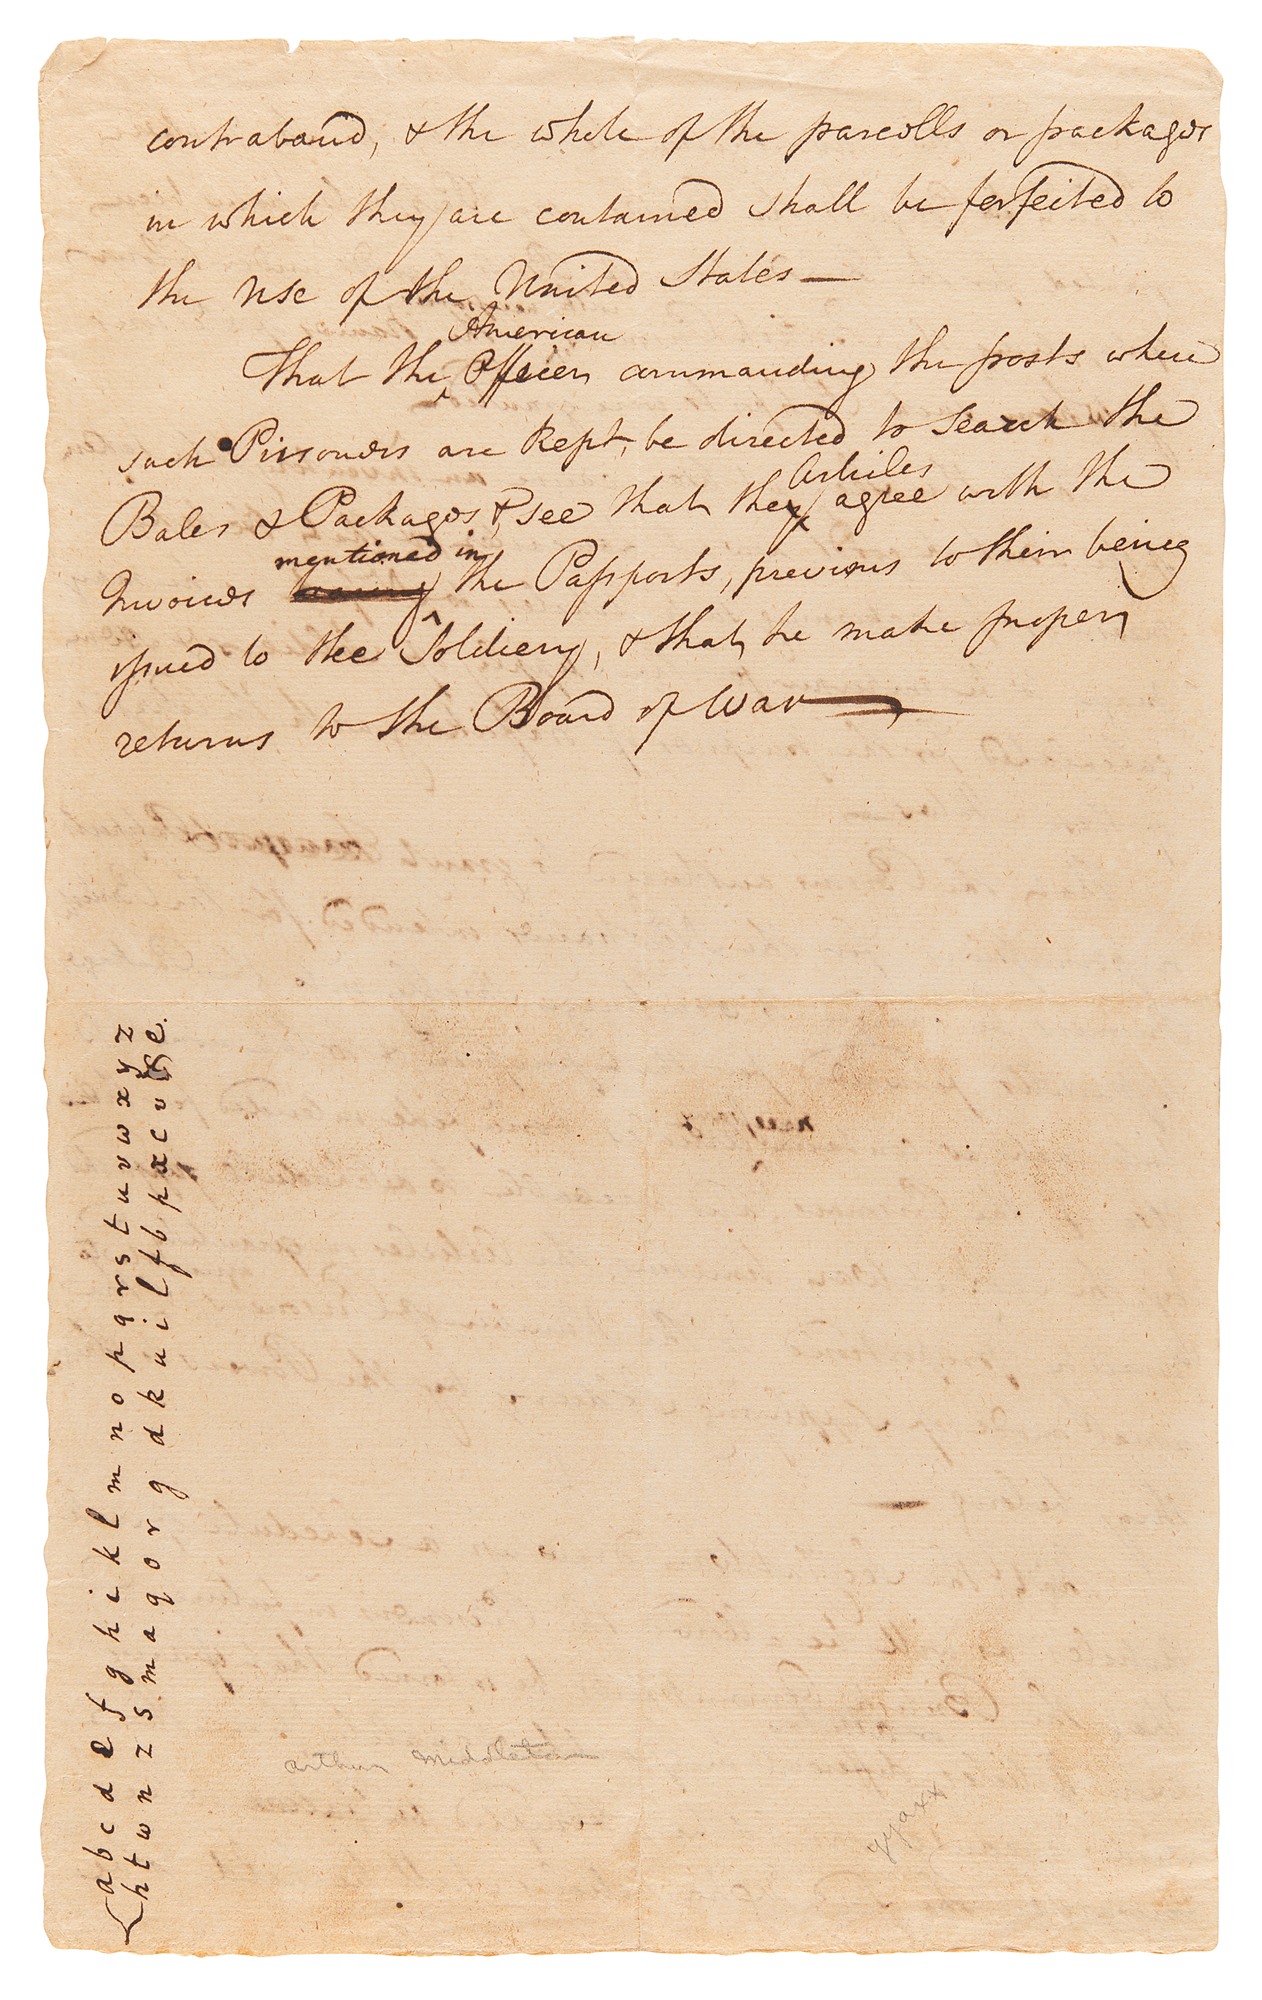 contraband, & the whole of the parcells or packages
in which they are contained shall be forfeited to
the use of the United States—
American
That the ^ Officer commanding the posts where
such Prisoners are kept, be directed to search the
Articles
Bales & Packages, & see that they agree with the
mentioned in
Invoices the Passports, previous to their being
issued to the Soldiery, & that he make proper
returns to the Board of War—
a b c d e f g h i k l m n o p q r s t u v w x y z
h t w n z s m a q o r g d k u i l f b p x c v y e.
arthur middleton